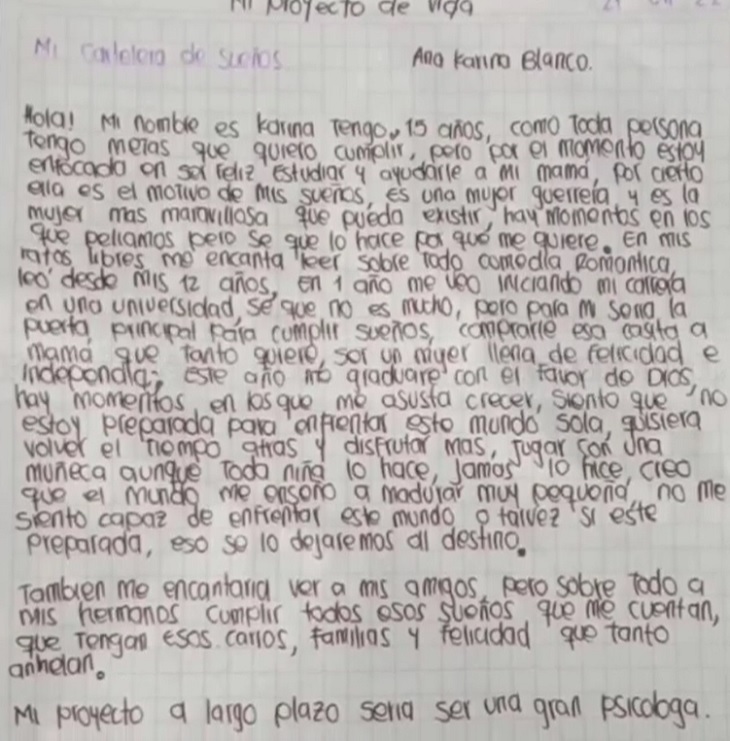 Mi proyecto de vida
Mi cartelera de sueños
Ana Karina Blanco.
Hola! Mi nombre es Karina Tengo, 15 años, como Toda persona
Tengo metas que quiero cumplir, pero por el momento estoy
enfocada en ser feliz Estudiar y ayudarle a mi mamá, por cierto
ella es el motivo de mis sueños, es una mujer guerrera, y es la
mujer mas maravillosa que pueda existir, hay momentos en los
que peliamos pero se que lo hace por que me quiere. En mis
ratos libres me encanta leer sobre Todo comedia Romantica,
leo desde mis 12 años, en 1 año me veo iniciando mi carrera
en una universidad, se que no es mucho, pero para mi seria la
puerta principal para cumplir sueños, comprarle esa casita a
mamá que tanto quiere, ser un mujer llena de felicidad e
independia, este año me graduare con el favor de Dios,
hay momentos en los que me asusta crecer, siento que no
estoy preparada para enfrentar esto mundo sola, quisiera
volver el tiempo atras y disfrutar mas, jugar con una
muñeca aunque Toda niña lo hace, Jamas lo hice, creo
que el mundo me enseño a madurar muy pequeña, no me
siento capaz de enfrentar este mundo o talvez si este
preparada, eso se lo dejaremos al destino.
Tambien me encantaria ver a mis amigos, pero sobre Todo a
mis hermanos cumplir todos esos sueños que me cuentan,
que Tengan esos carros, familias y felicidad que tanto
anhelan.
Mi proyecto a largo plazo seria ser una gran psicologa.